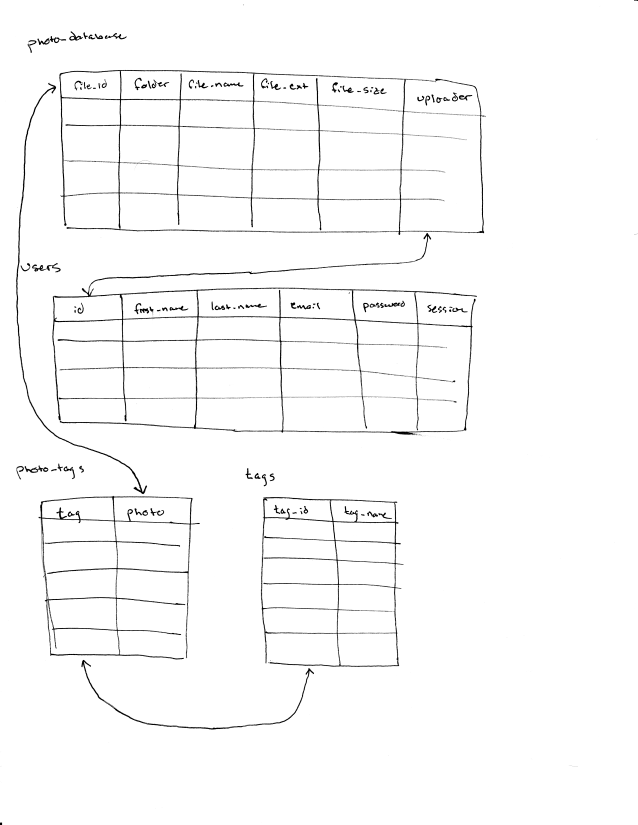 photo-database
file_id folder file_name file_ext file_size uploader
users
id first_name last_name email password session
photo-tags tags
tag photo tag_id tag_name